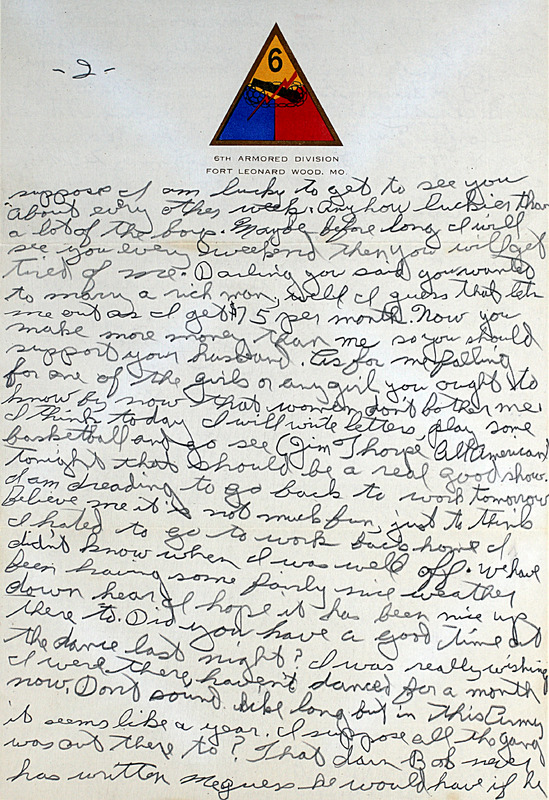 -2-
6
6TH ARMORED DIVISION
FORT LEONARD WOOD, MO.
suppose I am lucky to get to see you
about every other week. Anyhow luckier than
a lot of the boys. Maybe before long I will
see you every weekend then you will get
tired of me. Darling you said you wanted
to marry a rich man, well I guess that lets
me out as I get $75 per month. Now you
make more money than me so you should
support your husband. As for me falling
for one of the girls or any girl you ought to
know by now that women don't bother me.
I think today I will write letters, play some
basketball and go see (Jim Thorpe, All American)
tonight that should be a real good show.
I am dreading to go back to work tomorrow
believe me it is not much fun, just to think
I hated to go to work back home I
didn't know when I was well off. We have
been having some fairly nice weather
down hear, I hope it has been nice up
there to. Did you have a good time at
the dance last night? I was really wishing
I were there, haven't danced for a month
now. Dont sound like long but in this Army
it seems like a year. I suppose all the gang
was out there to? That darn Bob never
has written me guess he would have if he